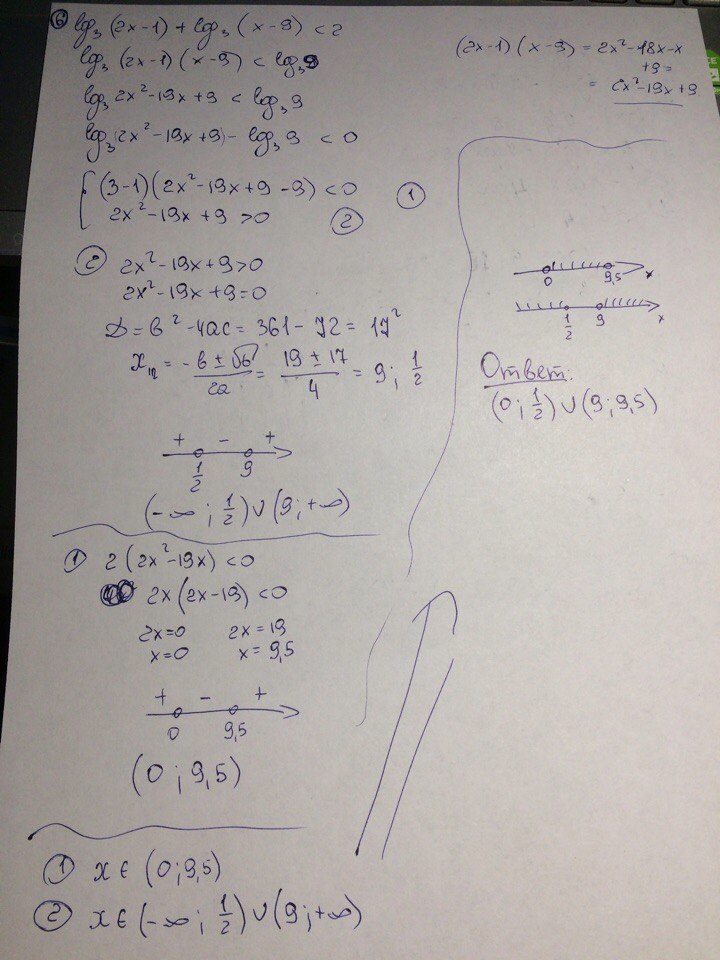 6 log₃(2x-1) + log₃(x-9) < 2
log₃ (2x-1)(x-9) < log₃9
log₃ 2x²-19x+9 < log₃ 9
log₃(2x²-19x+9) - log₃ 9 < 0
{ (3-1)(2x²-19x+9-9) < 0 ①
2x²-19x+9 > 0 ②
② 2x²-19x+9>0
2x²-19x+9=0
D = b²-4ac = 361-72 = 17²
x₁,₂ = (-b±√b)/2a = (19±17)/4 = 9; 1/2
+ - +
1/2 9
(-∞; 1/2)∪(9;+∞)
① 2(2x²-19x)<0
2x(2x-19)<0
2x=0 2x=19
x=0 x=9,5
+ - +
0 9,5
(0; 9,5)
① x∈(0;9,5)
② x∈(-∞; 1/2)∪(9;+∞)
(2x-1)(x-9) = 2x²-18x-x
+9 =
= 2x²-19x+9
0 9,5 x
1/2 9 x
Ответ:
(0; 1/2)∪(9; 9,5)